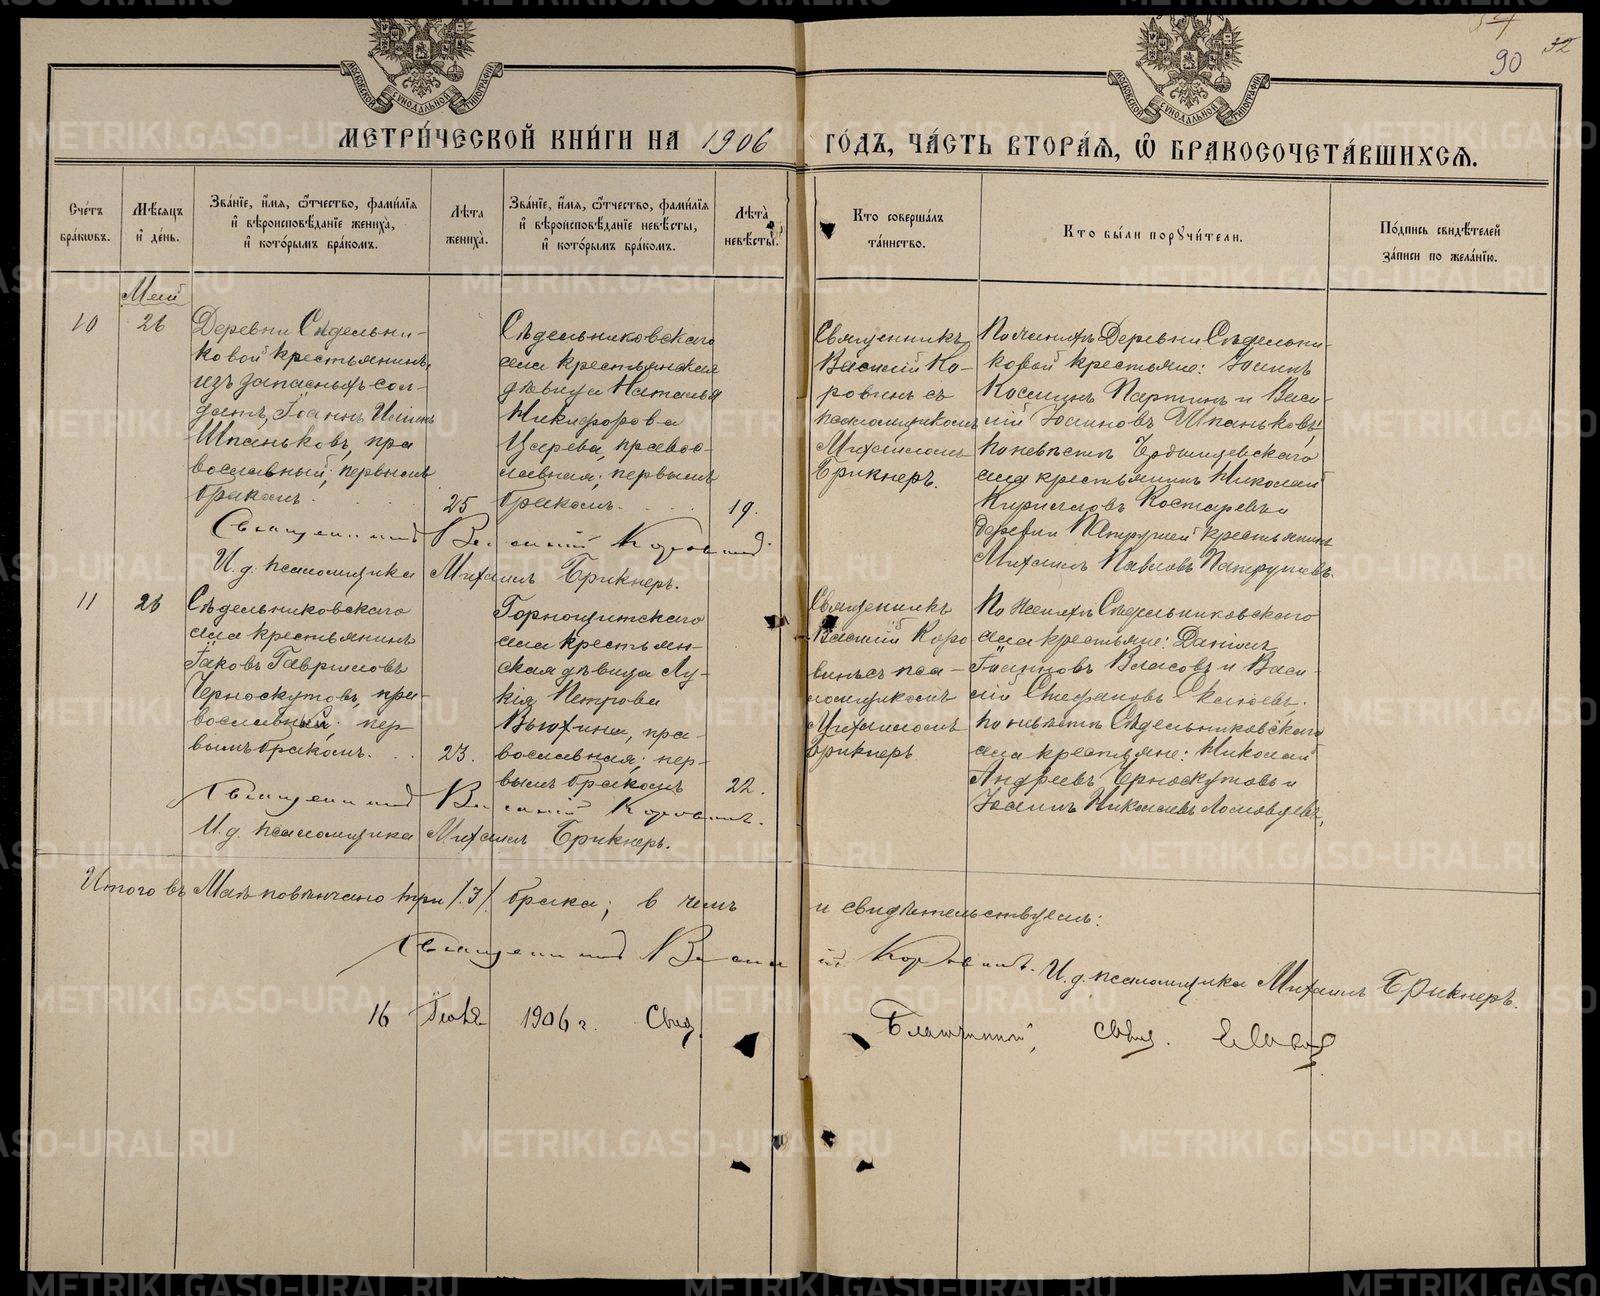 МОСКОВСКОЙ СѴНОДАЛЬНОЙ ТИПОГРАФІИ
МОСКОВСКОЙ СѴНОДАЛЬНОЙ ТИПОГРАФІИ
90
32
МЕТРИ́ЧЕСКОЙ КНИ́ГИ НА 1906 ГО́ДЪ, ЧА́СТЬ ВТОРА́Ѧ, Ѽ БРАКОСОЧЕТА́ВШИХСѦ.
Сче́тъ
бра́кѡвъ.
Мѣ́сѧцъ
и҆ де́нь.
Зва́нїе, и҆́мѧ, ѻ҆́тчество, фами́лїѧ
и҆ вѣроисповѣ́данїе жениха̀,
и҆ кото́рымъ бра́комъ.
Лѣ́та
жениха̀.
Зва́нїе, и҆́мѧ, ѻ҆́тчество, фами́лїѧ
и҆ вѣроисповѣ́данїе невѣ́сты,
и҆ кото́рымъ бра́комъ.
Лѣ́та
невѣ́сты.
Кто соверша́лъ
та́инство.
Кто бы́ли порꙋчи́тели.
По́дпись свидѣ́телей
за́писи по жела́нїю.
Май
10
26
Деревни Сѣдельни-
ковой крестьянинъ
изъ запасныхъ сол-
датъ, Іоаннъ
Шпаньковъ, пра
вославный; первымъ
бракомъ.
25
Сѣдельниковскаго
села крестьянская
дѣвица Наталья
Никифорова
Царева, правос-
лавная; первымъ
бракомъ.
19.
Священникъ
Василій Ко-
ровинъ съ
псаломщикомъ
Михаиломъ
Брикнеръ.
По женихѣ Деревни Сѣдельни-
ковой крестьяне: Іоаннъ
Космин Партинъ и Васи-
лій Іоанновъ Шпаньковъ;
по невѣстѣ
села крестьянинъ Николай
Кирилловъ Костаревъ и
деревни Патрушей крестьянинъ
Михаилъ Павловъ Патрушевъ.
Священникъ Василій Коровинъ.
И. д. псаломщика Михаилъ Брикнеръ.
11
26
Сѣдельниковскаго
села крестьянинъ
Іаковъ Гавриловъ
Черноскутовъ, пра-
вославный; пер
вымъ бракомъ.
23.
Горнощитскаго
села крестьян-
ская дѣвица Лу-
кія Петрова
Вьюхина, пра-
вославная; пер-
вымъ бракомъ
22.
Священникъ
Василій Коро
винъ съ пса-
ломщикомъ
Михаиломъ
Брикнеръ
По женихѣ Сѣдельниковскаго
села крестьяне: Даніилъ
Іоанновъ Власовъ и Васи-
лій Стефановъ
по невѣстѣ Сѣдельниковскаго
села крестьяне: Николай
Андреевъ Черноскутовъ и
Іоаннъ Николаевъ
Священникъ Василій Коровинъ.
И. д. псаломщика Михаилъ Брикнеръ.
Итого въ Маѣ повѣнчано три /3/ брака; в чемъ и свидѣтельствуемъ:
Священникъ Василій Коровинъ. И. д. псаломщика Михаилъ Брикнеръ.
16 Іюня 1906 г. Свид. Благочинный, свящ.
METRIKI.GASO-URAL.RU